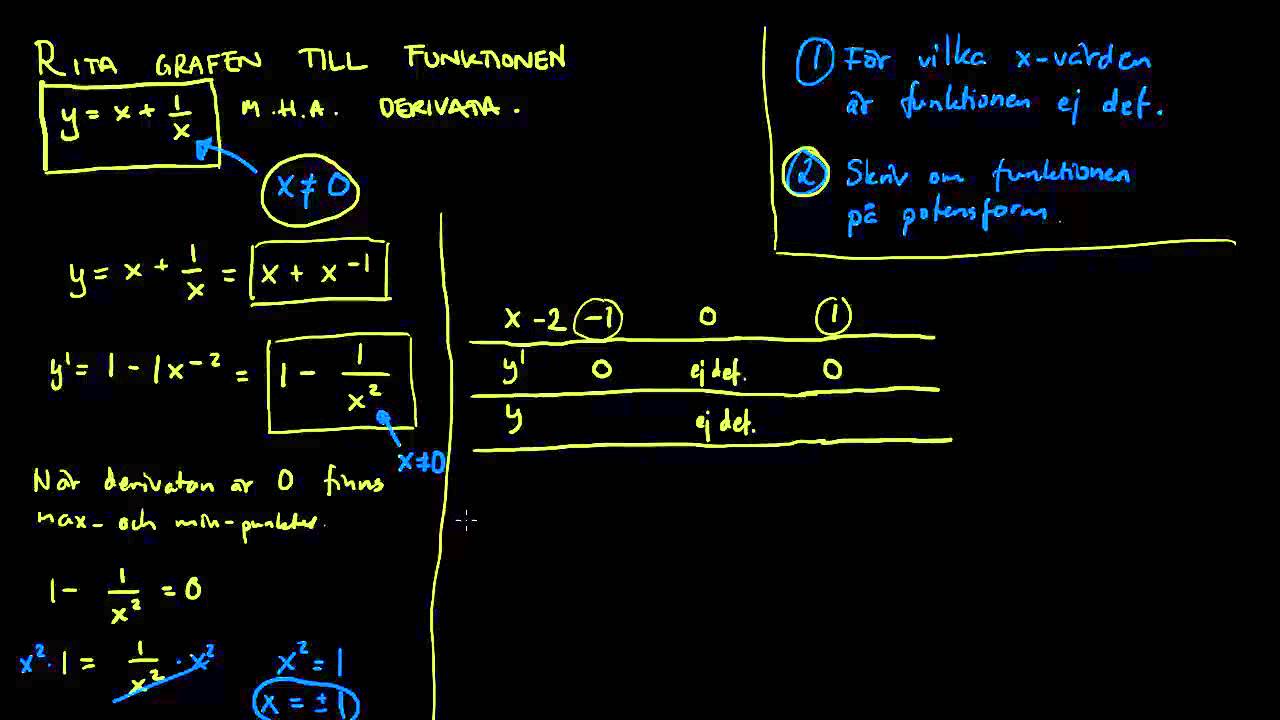 RITA GRAFEN TILL FUNKTIONEN
y = x + 1/x M.H.A. DERIVATA.
x ≠ 0
y = x + 1/x = x + x⁻¹
y' = 1 - 1x⁻² = 1 - 1/x²
x ≠ 0
När derivatan är 0 finns
max- och min-punkter.
1 - 1/x² = 0
x² · 1 = 1/x² · x² x² = 1
x = ±1
① För vilka x-värden
är funktionen ej def.
② Skriv om funktionen
på potensform.
x -2 -1 0 1
y' 0 ej def. 0
y ej def.